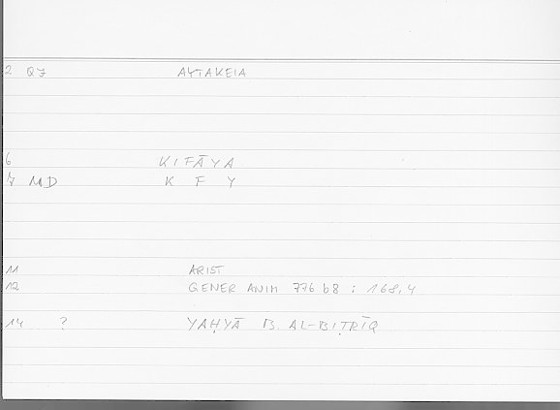 2 QJ AYTAKEIA
6 KIFĀYA
7 MD K F Y
11 ARIST
12 GENER ANIM 776 b8 : 168,4
14 ? YAḤYĀ B. AL-BIṬRĪQ